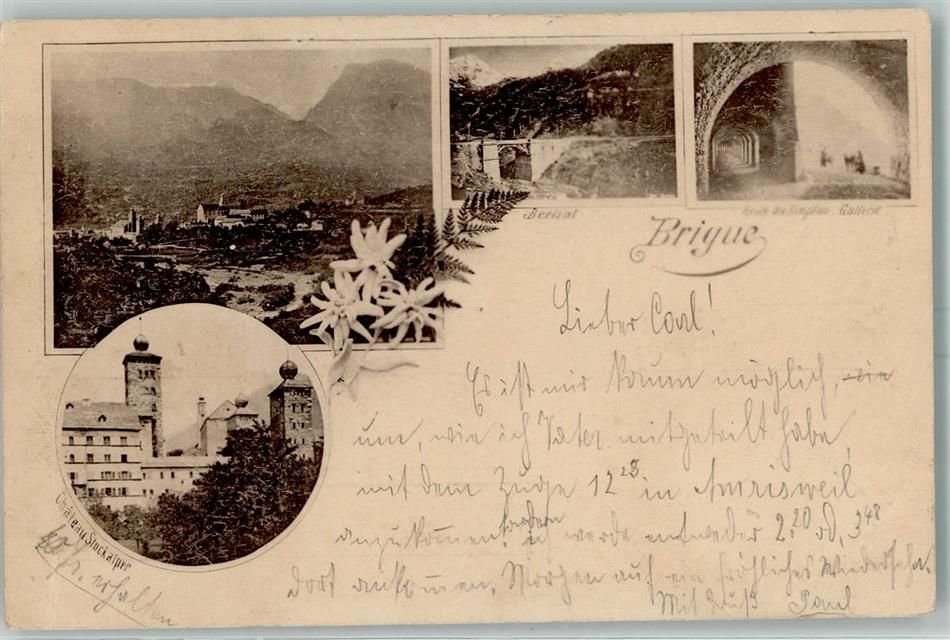 Berisal
Route du Simplon - Gallerie
Brigue
Château Stockalper
Lieber Carl!
Es ist mir kaum möglich, ein
um, wie ich Vater mitgeteilt habe,
mit dem Zuge 12 23 in
anzukommen, sondern
ich werde entweder 2.20 od. 3 48
dort ankommen. Morgen auf ein fröhliches Wiedersehn.
Mit Gruß Paul
erhalten